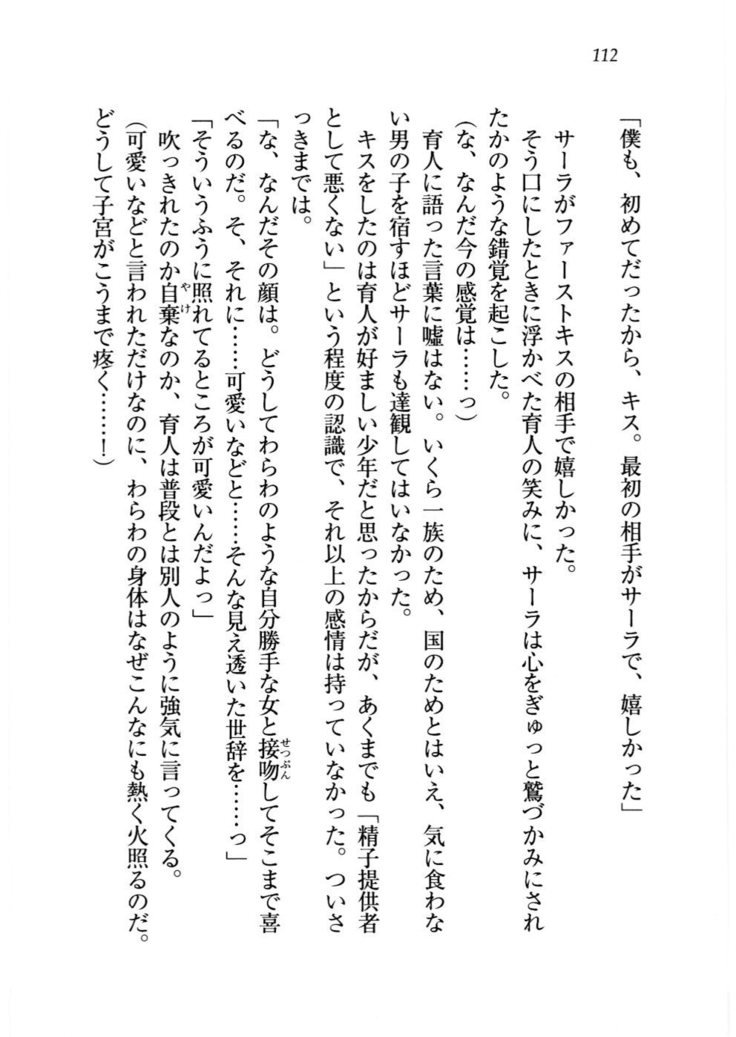 112
「僕も、初めてだったから、キス。最初の相手がサーラで、嬉しかった」
サーラがファーストキスの相手で嬉しかった。
そう口にしたときに浮かべた育人の笑みに、サーラは心をぎゅっと鷲づかみにされ
たかのような錯覚を起こした。
（な、なんだ今の感覚は……っ）
育人に語った言葉に嘘はない。いくら一族のため、国のためとはいえ、気に食わな
い男の子を宿すほどサーラも達観してはいなかった。
キスをしたのは育人が好ましい少年だと思ったからだが、あくまでも「精子提供者
として悪くない」という程度の認識で、それ以上の感情は持っていなかった。ついさ
っきまでは。
「な、なんだその顔は。どうしてわらわのような自分勝手な女と接吻してそこまで喜
べるのだ。そ、それに……可愛いなどと……そんな見え透いた世辞を……っ」
「そういうふうに照れてるところが可愛いんだよっ」
吹っきれたのか自棄なのか、育人は普段とは別人のように強気に言ってくる。
（可愛いなどと言われただけなのに、わらわの身体はなぜこんなにも熱く火照るのだ。
どうして子宮がこうまで疼く……！）